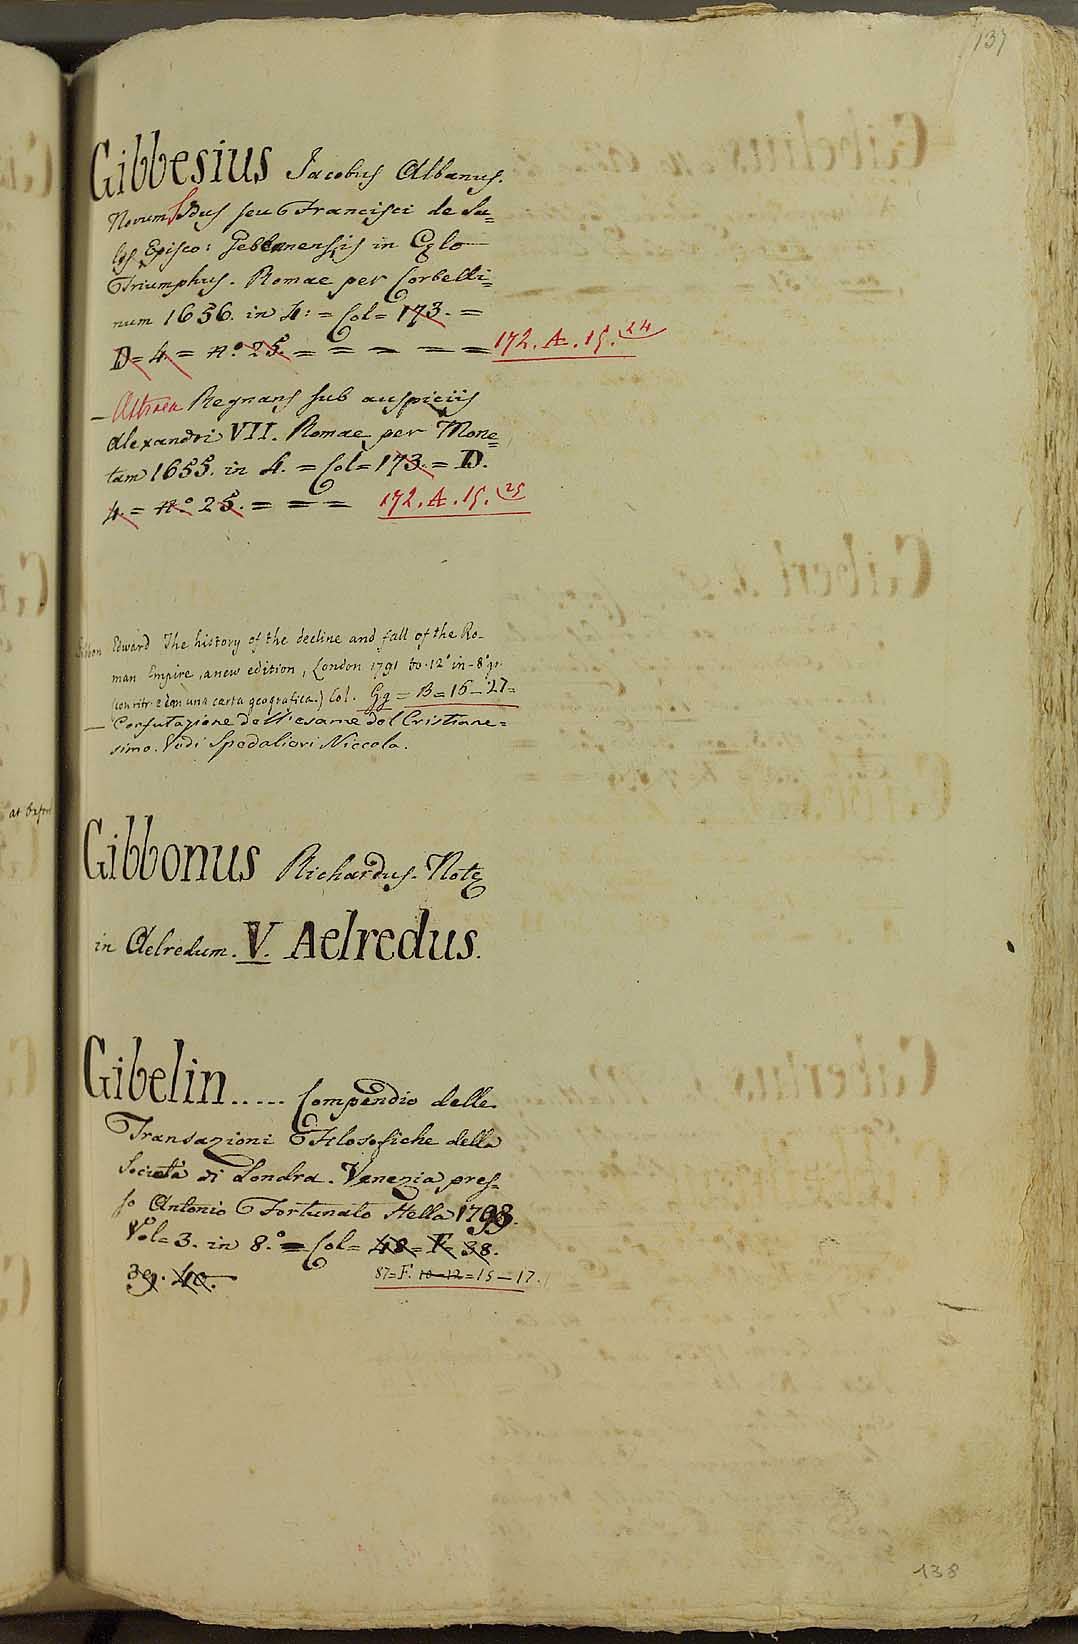 137
Gibbesius Jacobus Albanus.
Novum Sidus seu Francisci de Sa=
les Episco: Gebenensis in Cælo
Triumphus. Romae per Corbelli=
num 1656. in 4: = Col= 173. =
D= 4. = n.° 25. = = = = = 172. A. 15. 24
— Astraea Regnans sub auspiciis
Alexandri VII. Romae per Mone=
tam 1655. in 4. = Col= 173. = D.
4. = n.° 25. = = = 172. A. 15. 25
Gibbon Edward The history of the decline and fall of the Ro-
man Empire, a new edition, London 1791 to. 12° in-8° gr.
(con ritr. e con una carta geografica.) Col. Gg = B = 16 — 27=
— Confutazione dell'esame del Cristiane=
simo. Vedi Spedalieri Niccola.
at Oxford
Gibbonus Richardus. Notæ
in Aelredum. V. Aelredus.
Gibelin..... Compendio delle
Transazioni Filosofiche della
Società di Londra. Venezia pres=
so Antonio Fortunato Stella 1793.
Vol= 3. in 8.° = Col= 48= F= 38.
39. 40. 87=F. 10-12=15—17.
138